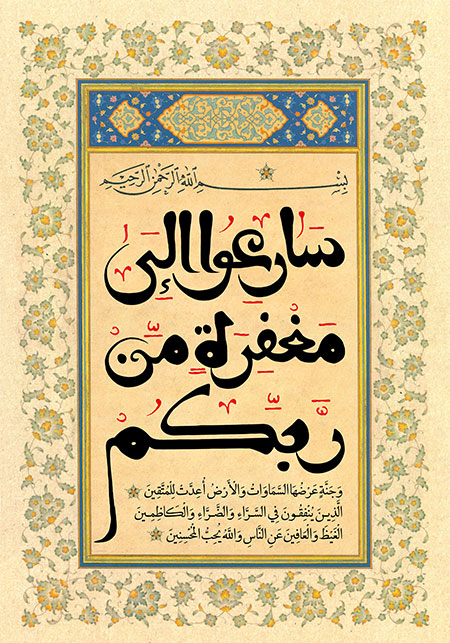 بِسْمِ اللهِ الرَّحْمٰنِ الرَّحِيمِ
سَارِعُوا إِلَىٰ
مَغْفِرَةٍ مِّن
رَّبِّكُمْ
وَجَنَّةٍ عَرْضُهَا السَّمَاوَاتُ وَالْأَرْضُ أُعِدَّتْ لِلْمُتَّقِينَ
الَّذِينَ يُنْفِقُونَ فِي السَّرَّاءِ وَالضَّرَّاءِ وَالْكَاظِمِينَ
الْغَيْظَ وَالْعَافِينَ عَنِ النَّاسِ وَاللهُ يُحِبُّ الْمُحْسِنِينَ